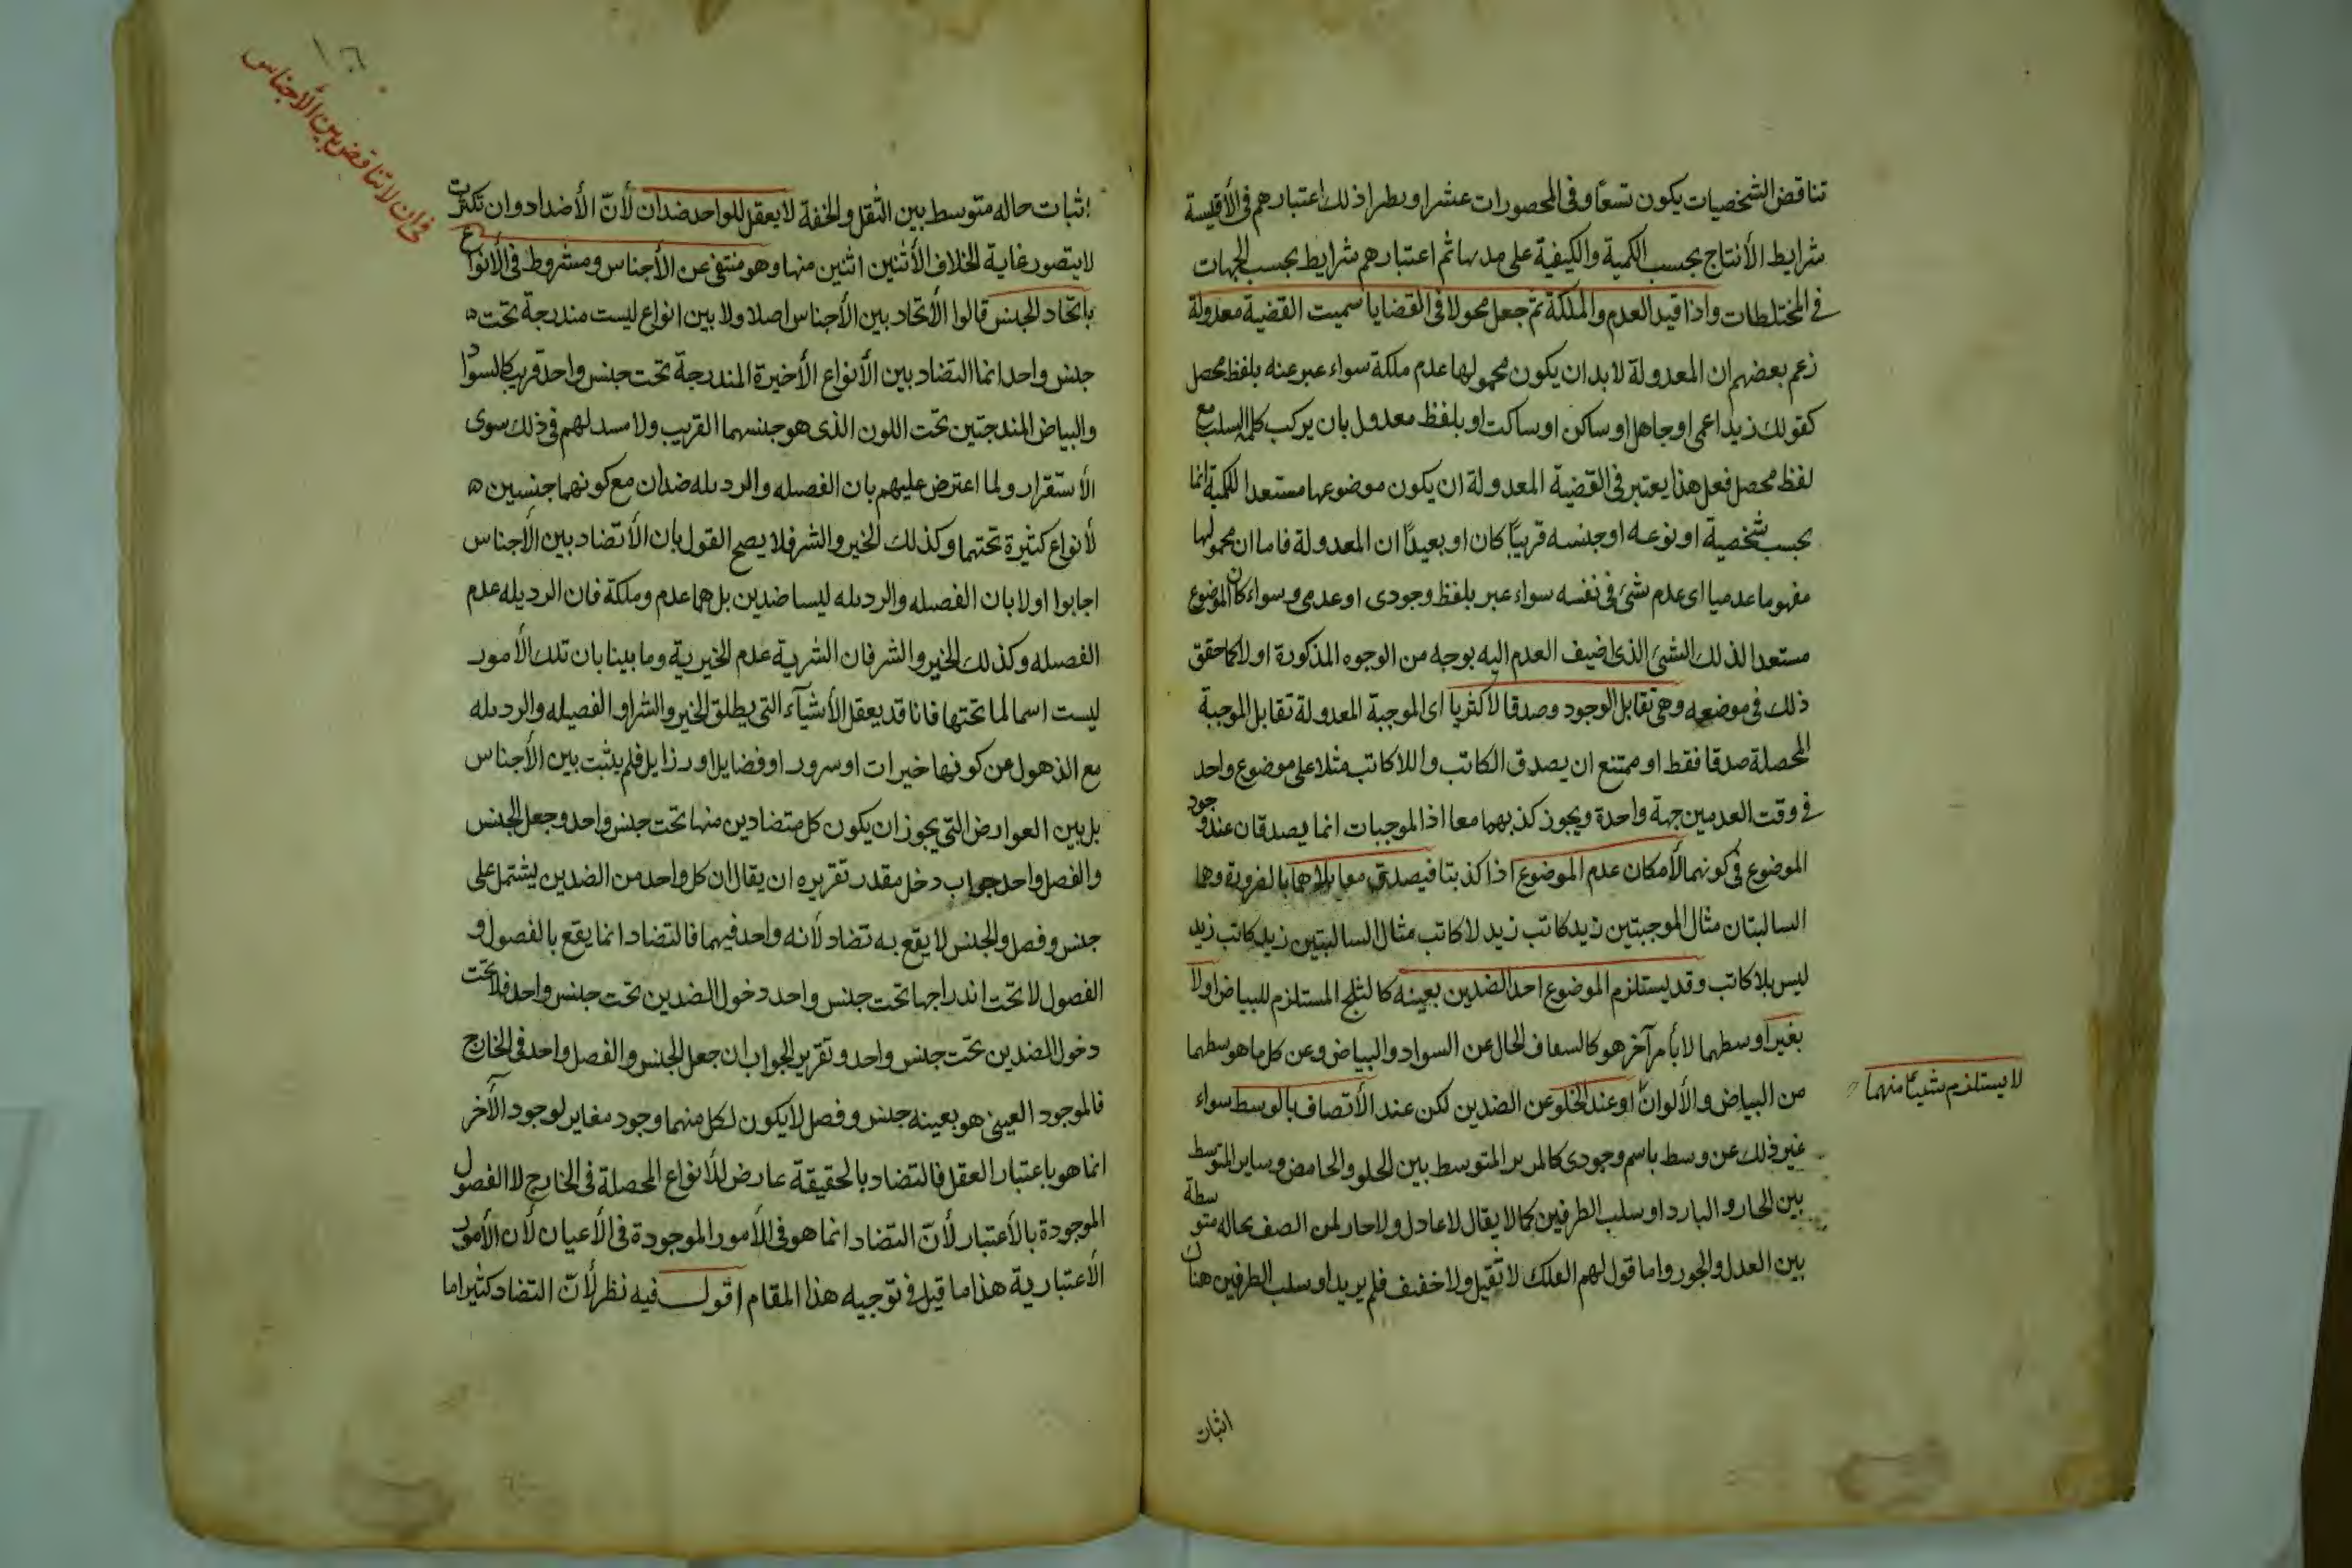 تناقض الشخصيات يكون تسعًا وفى المحصورات عشرا ويطرا ذلك اعتبارهم فى الأقيسة
شرايط الأنتاج بحسب الكمية والكيفية على مدبها ثم اعتبارهم شرايط بحسب الجهات
فى المختلطات واذا قيد العدم والملكة ثم جعل محولا فى القضايا سميت القضية معدولة
زعم بعضهم ان المعدولة لابد ان يكون محمولها عدم ملكة سواء عبر عنه بلفظ محصل
كقولك زيد اعمى اوجاهل او ساكن او ساكت او بلفظ معدول بان يركب كلمة السلب مع
لفظ محصل فعل هذا يعتبر فى القضية المعدولة ان يكون موضوعها مستعدا للكمية انما
بحسب شخصية او نوعه او جنسه قريبًا كان او بعيدًا ان المعدولة فاما ان محمولها
مفهوما عدميا اى عدم شئ فى نفسه سواء عبر بلفظ وجودى او عدمى وسواء كان الموضوع
مستعدا لذلك الشئ الذى اضيف العدم اليه بوجه من الوجوه المذكورة او لا كما حقق
ذلك فى موضعه وهى تقابل الوجود وصدقا لا كثريا اى الموجبة المعدولة تقابل الموجبة
المحصلة صدقا فقط او ممتنع ان يصدق الكاتب واللاكاتب مثلا على موضوع واحد
فى وقت العدمين جهة واحدة ويجوز كذبهما معا اذ الموجبات انما يصدقان عند وجود
الموضوع فى كونهما لأمكان عدم الموضوع اذا كذبتا فيصدق معا بالضرورة وهما
السالبتان مثال الموجبتين زيد كاتب زيد لاكاتب مثال السالبتين زيد كاتب زيد
ليس بلاكاتب وقد يستلزم الموضوع احد الضدين بعينه كالثلج المستلزم للبياض اولا
بغير اوسطهما لا بأمر آخر هو كالسعاف الحال عن السواد والبياض وعن كل ما هو سطهما
لا يستلزم شيئًا منهما
من البياض والألوان او عند الخلو عن الضدين لكن عند الأتصاف بالوسط سواء
غير ذلك عن وسط باسم وجودى كالمربر المتوسط بين الحلو والحامض وساير المتوسط
بين الحار والبارد او سلب الطرفين كما لا يقال لا عادل ولا حار لمن الصف بحاله متوسطة
بين العدل والجور واما قول لهم الفلك لا ثقيل ولا خفيف فلم يريد او سلب الطرفين هنا
اثبات
١٠٦
فى ان لا تناقض بين الأجناس
اثبات حاله متوسط بين الثقل والخفة لا يعقل للواحد ضدان لأنّ الأضداد وان تكثرت
لا يتصور غاية الخلاف الأثنين اثنين منها وهو منتفى عن الأجناس ومشروط فى الأنواع
باتحاد الجنس قالوا الأتحاد بين الأجناس اصلا ولا بين انواع ليست مندرجة تحت
جنس واحد انما التضاد بين الأنواع الأخيرة المندرجة تحت جنس واحد قريب كالسواد
والبياض المندجتين تحت اللون الذى هو جنسهما القريب ولا مسد لهم فى ذلك سوى
الأستقرار ولما اعترض عليهم بان الفصيله والرديله ضدان مع كونهما جنسين
لأنواع كثيرة تحتهما وكذلك الخير والشر فلا يصح القول بان الأتضاد بين الأجناس
اجابوا اولا بان الفصيله والرديله ليسا ضدين بل هما عدم وملكة فان الرديله عدم
الفصيله وكذلك الخير والشر فان الشرية عدم الخيرية وما بينا بان تلك الأمور
ليست اسما لما تحتها فانا قد يعقل الأشيآء التى يطلق الخير والشر او الفصيله والرديله
مع الذهول عن كونها خيرات او سرور او فضايل او رذايل فلم يثبت بين الأجناس
بل بين العوارض التى يجوز ان يكون كل متضادين منها تحت جنس واحد وجعل الجنس
والفصل واحد جواب دخل مقدر تقريره ان يقال ان كل واحد من الضدين يشتمل على
جنس وفصل والجنس لا يقع به تضاد لأنه واحد فيهما فالتضاد انما يقع بالفصول و
الفصول لا تحت اندراجها تحت جنس واحد دخول الضدين تحت جنس واحد فلا تحت
دخول الضدين تحت جنس واحد وتقرير الجواب ان جعل الجنس والفصل واحد فى الخارج
فالموجود العينى هو بعينه جنس وفصل لا يكون لكل منهما وجود مغاير لوجود الآخر
انما هو باعتبار العقل فالتضاد بالحقيقة عارض للأنواع المحصلة فى الخارج لا الفصول
الموجودة بالأعتبار لأنّ التضاد انما هو فى الأمور الموجودة فى الأعيان لأن الأمور
الأعتبارية هذا ما قيل فى توجيه هذا المقام اقول فيه نظر لأنّ التضاد كثيرا ما